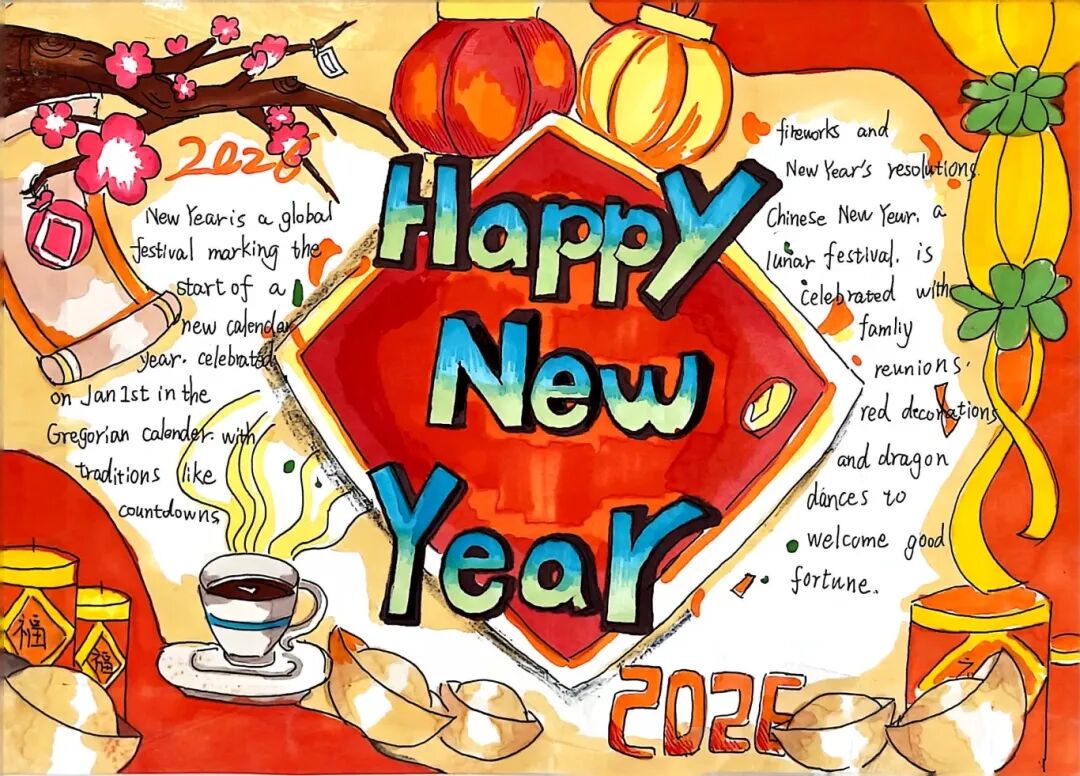 2026
New Year is a global
festival marking the
start of a
new calendar
year. celebrated
on Jan 1st in the
Gregorian calender. with
traditions like
countdowns
Happy
New
Year
fireworks and
New Year's resolutions.
Chinese New Year. a
lunar festival. is
celebrated with
famliy
reunions.
red decorations
and dragon
dances to
welcome good
fortune.
福
福
202